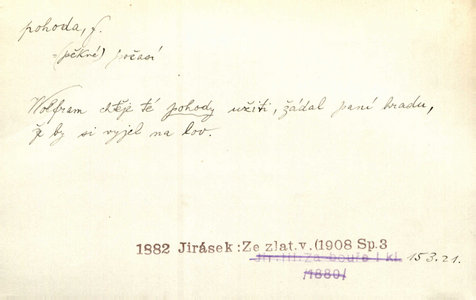 pohoda, f.
=(pěkné) počasí
Wolfram chtěje té pohody užiti, žádal paní hradu,
že by si vyjel na lov.
1882 Jirásek: Ze zlat.v.(1908 Sp.3
Jir.III.Za bouře I kl. 15.3.21.
/1880/